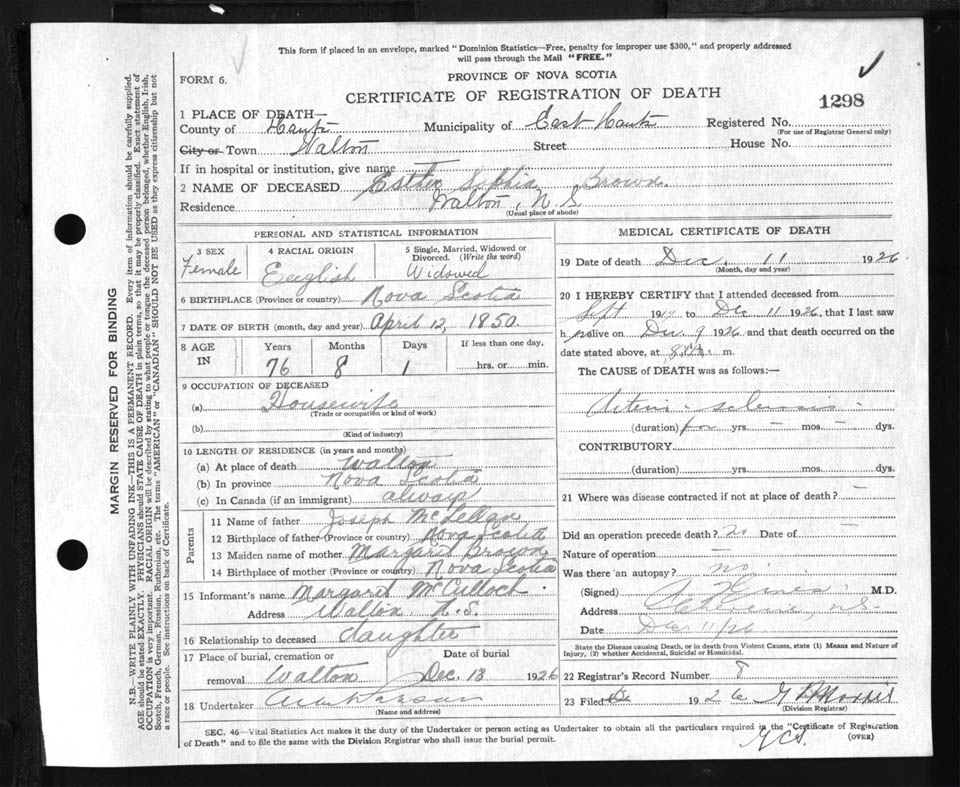 This form if placed in an envelope, marked "Dominion Statistics—Free, penalty for improper use $300," and properly addressed
will pass through the Mail "FREE."
FORM 6.
PROVINCE OF NOVA SCOTIA
CERTIFICATE OF REGISTRATION OF DEATH
1298
1 PLACE OF DEATH—
County of Hants Municipality of East Hants Registered No.
(For use of Registrar General only)
City or Town Walton Street House No.
If in hospital or institution, give name
2 NAME OF DECEASED Esther Sophia Brown.
Residence Walton, N. S.
(Usual place of abode)
PERSONAL AND STATISTICAL INFORMATION
3 SEX
Female
4 RACIAL ORIGIN
English
5 Single, Married, Widowed or
Divorced. (Write the word)
Widowed
6 BIRTHPLACE (Province or country) Nova Scotia
7 DATE OF BIRTH (month, day and year) April 12, 1850.
8 AGE
IN
Years Months Days If less than one day,
76 8 1 hrs. or min.
9 OCCUPATION OF DECEASED
(a) Housewife
(Trade or occupation or kind of work)
(b)
(Kind of industry)
10 LENGTH OF RESIDENCE (in years and months)
(a) At place of death Walton
(b) In province Nova Scotia
(c) In Canada (if an immigrant) always
Parents
11 Name of father Joseph McLellan
12 Birthplace of father (Province or country) Nova Scotia
13 Maiden name of mother Margaret Brown
14 Birthplace of mother (Province or country) Nova Scotia
15 Informant's name Margaret McCulloch
Address Walton N.S.
16 Relationship to deceased daughter
17 Place of burial, cremation or Date of burial
removal Walton Dec. 13 1926
18 Undertaker
(Name and address)
MEDICAL CERTIFICATE OF DEATH
19 Date of death Dec. 11 1926
(Month, day and year)
20 I HEREBY CERTIFY that I attended deceased from
Sept 1917 to Dec 11 1926, that I last saw
h alive on Dec 9 1926 and that death occurred on the
date stated above, at 8 m.
The CAUSE of DEATH was as follows:—
Arterio-sclerosis
(duration) yrs. — mos. — dys.
CONTRIBUTORY
(duration) yrs. mos. dys.
21 Where was disease contracted if not at place of death? —
Did an operation precede death? no Date of
Nature of operation —
Was there an autopsy? no
(Signed) M.D.
Address N.S.
Date Dec 11/26
State the Disease causing Death, or in death from Violent Causes, state (1) Means and Nature of
Injury, (2) whether Accidental, Suicidal or Homicidal.
22 Registrar's Record Number 8
23 Filed 1926 Morris
(Division Registrar)
SEC. 46—Vital Statistics Act makes it the duty of the Undertaker or person acting as Undertaker to obtain all the particulars required in the "Certificate of Registration
of Death" and to file the same with the Division Registrar who shall issue the burial permit.
(OVER)
MARGIN RESERVED FOR BINDING
N.B.—WRITE PLAINLY WITH UNFADING INK—THIS IS A PERMANENT RECORD. Every item of information should be carefully supplied.
AGE should be stated EXACTLY. PHYSICIANS should STATE CAUSE OF DEATH in plain terms, so that it may be properly classified. Exact statement of
OCCUPATION is very important. RACIAL ORIGIN will be described by stating to what people or tongue the deceased person belonged, whether English, Irish,
Scotch, French, German, Russian, Ruthenian, etc. The terms "AMERICAN" or "CANADIAN" SHOULD NOT BE USED as they express citizenship but not
a race or people. See instructions on back of Certificate.